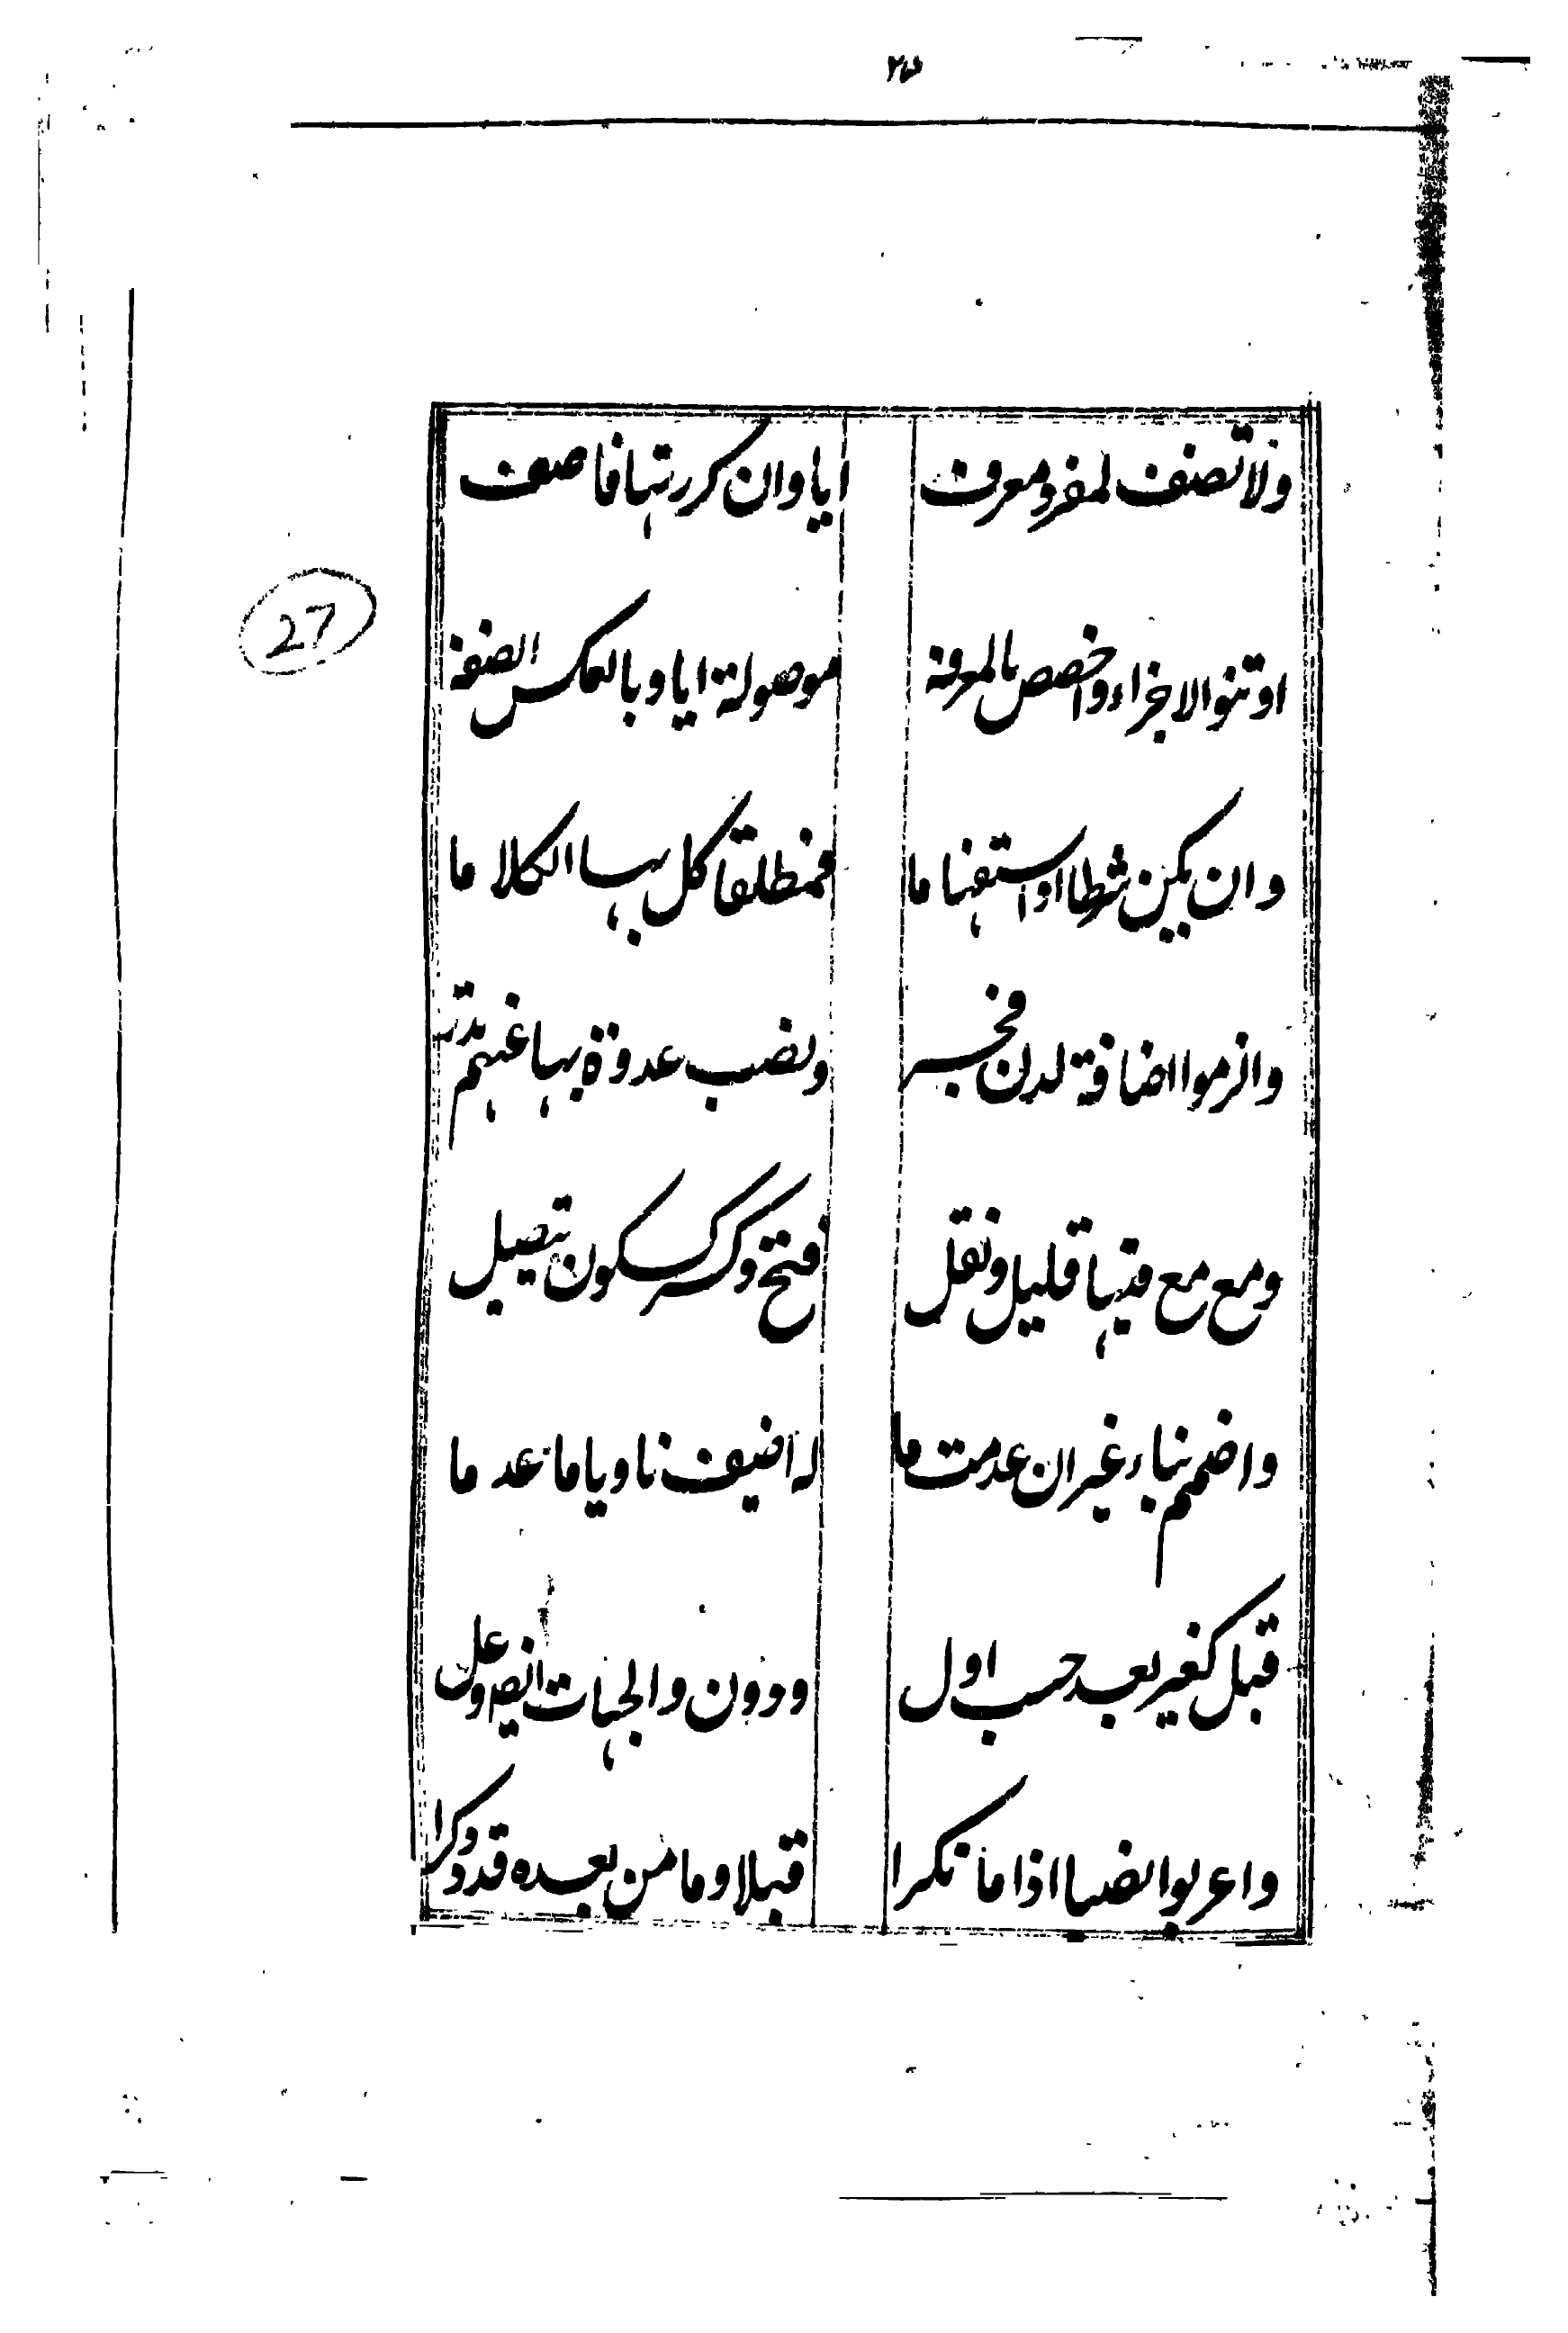 ٢٥
ولا تضف لمفرد معرف ايا وان كررتها فاضف
او تنو الاجزاء واخصص بالمعرفة موصولة ايا وبالعكس الصفة
وان يكن شرطا او استفهاما فمطلقا كل بها الكلاما
والزموا اضافة لدن فجر ونصب غدوة بها عنهم ندر
ومع مع فيها قليل ونقل فتح وكسر لسكون يتصل
واضمم بناء غير ان عدمت ما له اضيف ناويا ما عدما
قبل كغير بعد حسب اول ودون والجهات ايضا وعل
واعربوا نصبا اذا ما نكرا قبلا وما من بعده قد ذكرا
27